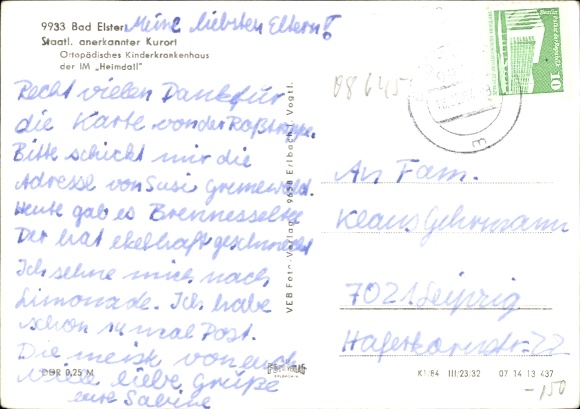 9933 Bad Elster
Staatl. anerkannter Kurort
Orthopädisches Kinderkrankenhaus
der IM „Heimdall"
Meine liebsten Eltern!
Recht vielen Dank für
die Karte von der Roßtrappe.
Bitte schickt mir die
Adresse von Susi Grunewald.
Heute gab es Brennesseltee
Der hat ekelhaft geschmeckt
Ich sehne mich nach
Limonade. Ich habe
schon 14 mal Post.
Die meist von euch
viele liebe Grüße
eure Sabine
DDR 0,25 M
VEB Foto-Verlag 9658 Erlbach i. Vogtl.
08645
10
An Fam.
Klaus Gehrmann
7021 Leipzig
Haferkornstr. 22
K1/84 III/23/32 07 14 13 437
-150